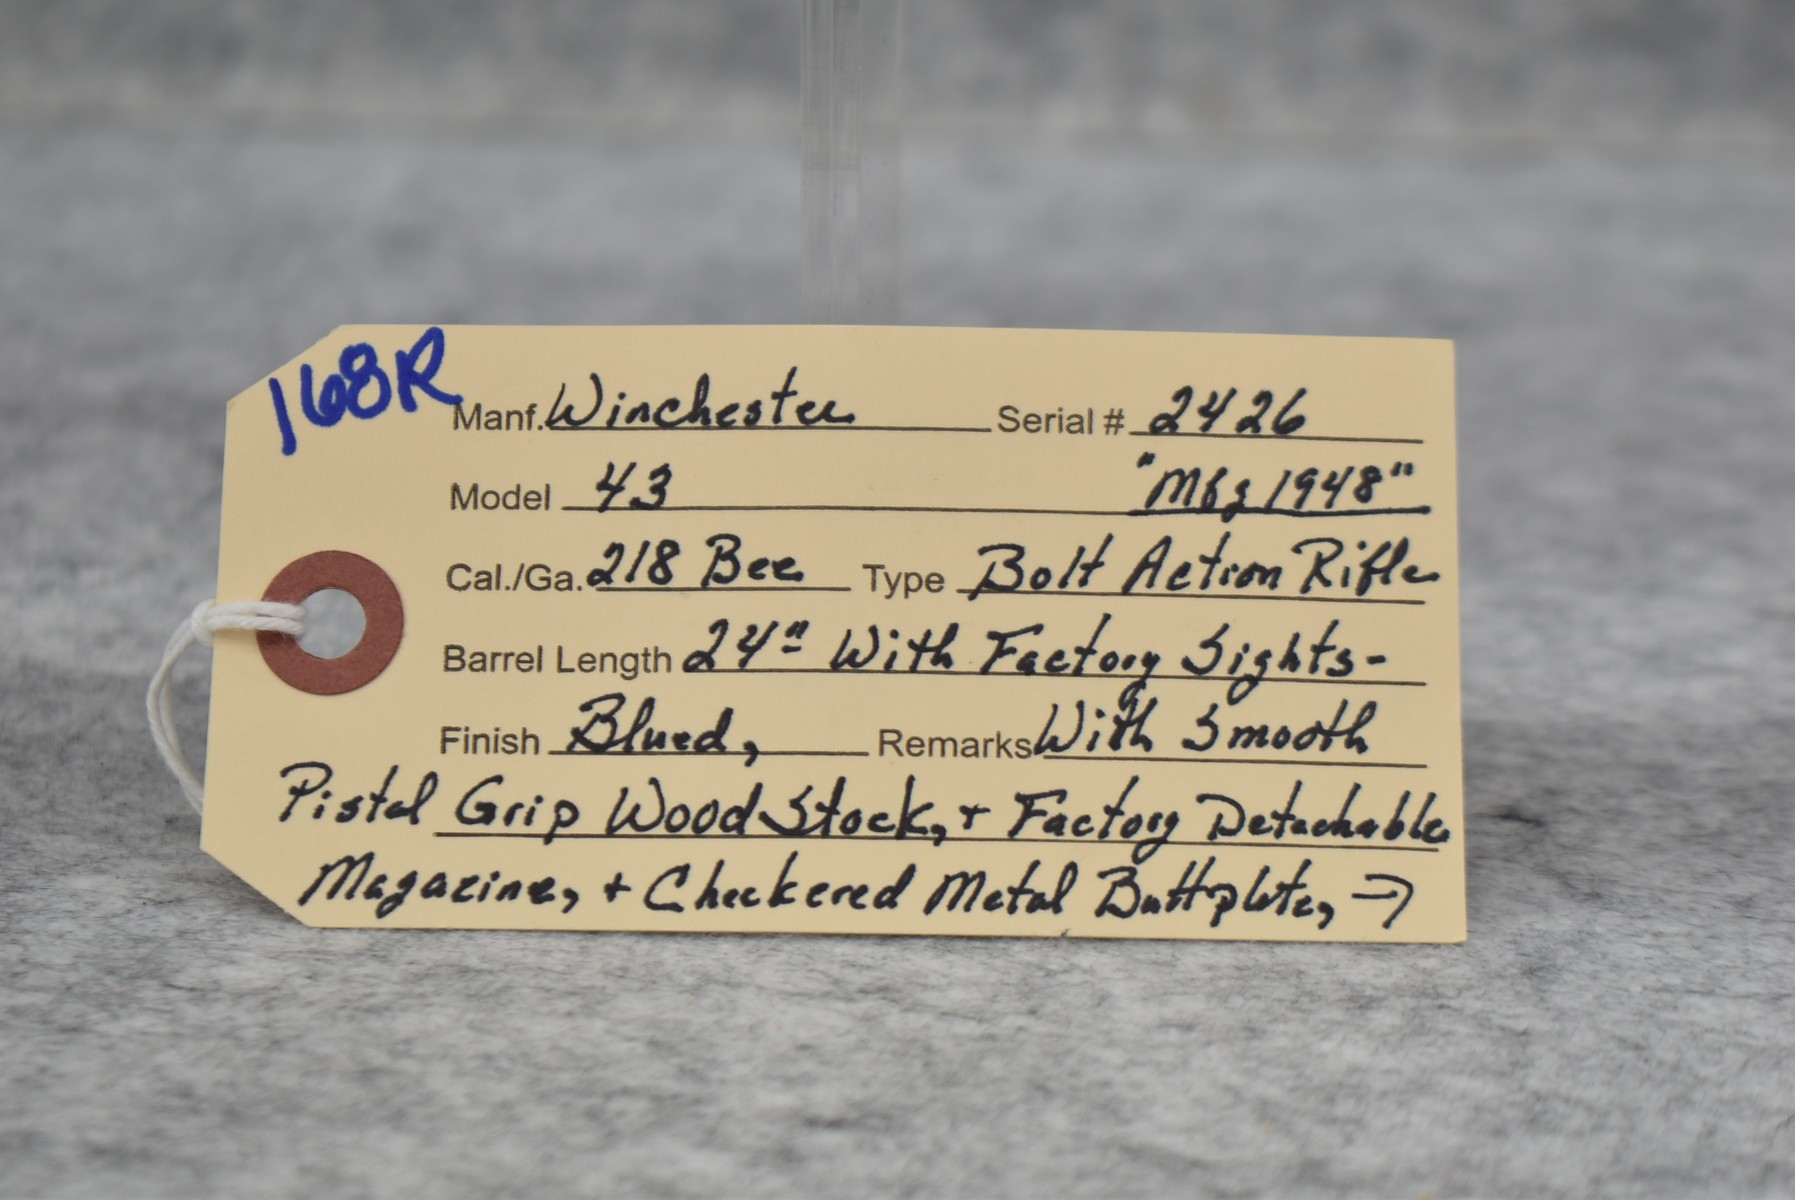 168R
Manf. Winchester Serial # 2426
Model 43 "Mfg 1948"
Cal./Ga. 218 Bee Type Bolt Action Rifle
Barrel Length 24" With Factory Sights-
Finish Blued, Remarks With Smooth
Pistol Grip Wood Stock, + Factory Detachable
Magazine, + Checkered Metal Buttplate, →